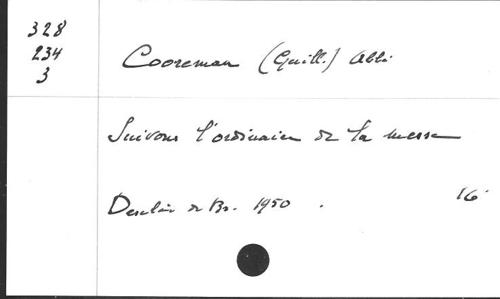 328
234
3
Cooreman (Guill.) Abbé
Suivons l'ordinaire de la messe
Desclée de Br. 1950 . 16°